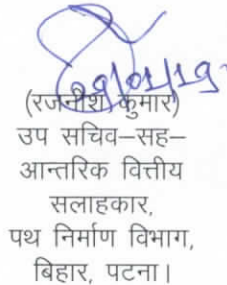 09/01/19
(रजनीश कुमार)
उप सचिव–सह–
आन्तरिक वित्तीय
सलाहकार,
पथ निर्माण विभाग,
बिहार, पटना।